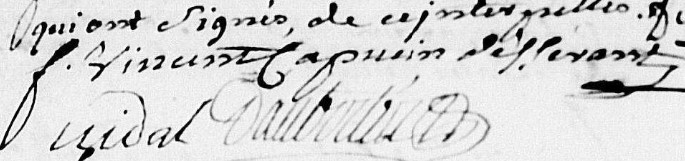 qui ont signés, de ce interpellés.
f. Vincent Capucin désservant
vidal